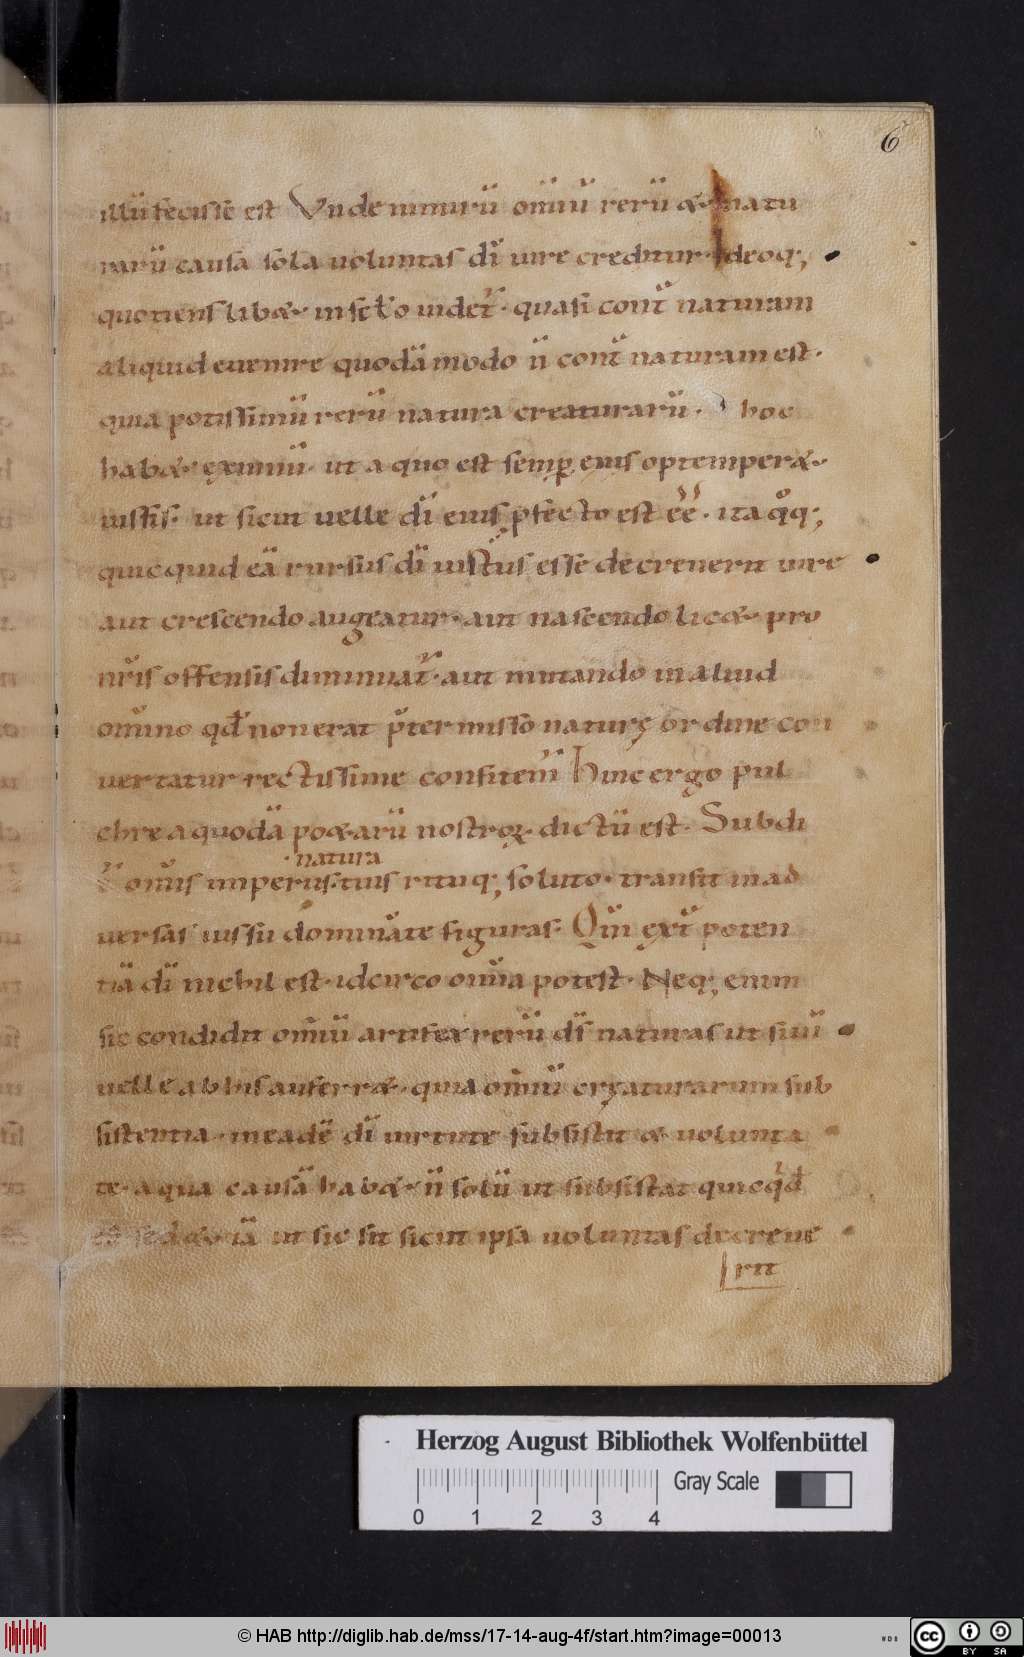 6
illū fecisse est Vnde nimirū om̄iū rerū & natu
rarū causa sola uoluntas dī uire creditur. Ideoq;
quotiens libæ in sc̄lo uidet̄. quasi cont̄ naturam
aliquid euenire quodā modo n̄ cont̄ naturam est.
quia potissimū rerū natura creaturarū. hoc
habæ eximiū. ut a quo est semp̱ eius optemperæ
iussis. ut sicut uelle dī eius p̱fecto est ēē. ita qͦq;
quicquid eā rursus dī iustus esse decreuerit uire
aut crescendo augeatur. aut nascendo licæ pro
nr̄is offensis diminuat̄. aut mutando in aliud
om̄ino qd̄ non erat p̄termisso naturę ordine con
uertatur rectissime confitem̄ Hinc ergo pul
chre a quodā poætarū nostroꝝ dictū est. Subdi
om̄is imperiis.
natura
tuis rituq; soluto. transit in ad
uersas iussu domināte figuras. Qm̄ ext̄ poten
tiā dī nichil est. idcirco om̄ia potest. Neq; enim
sic condidit om̄iū artifex rerū ds̄ naturas ut suū
uelle ab his auferræ. quia om̄iū cręaturarum sub
sistentia. in eadē dī uirtute subsistit & uolunta
te. a qua causā habæ. n̄ solū ut subsistat quicqd̄
est sed etiā ut sic sit sicut ipsa uoluntas decreue
rit
Herzog August Bibliothek Wolfenbüttel
Gray Scale
0 1 2 3 4
© HAB http://diglib.hab.de/mss/17-14-aug-4f/start.htm?image=00013
WDB
cc BY SA